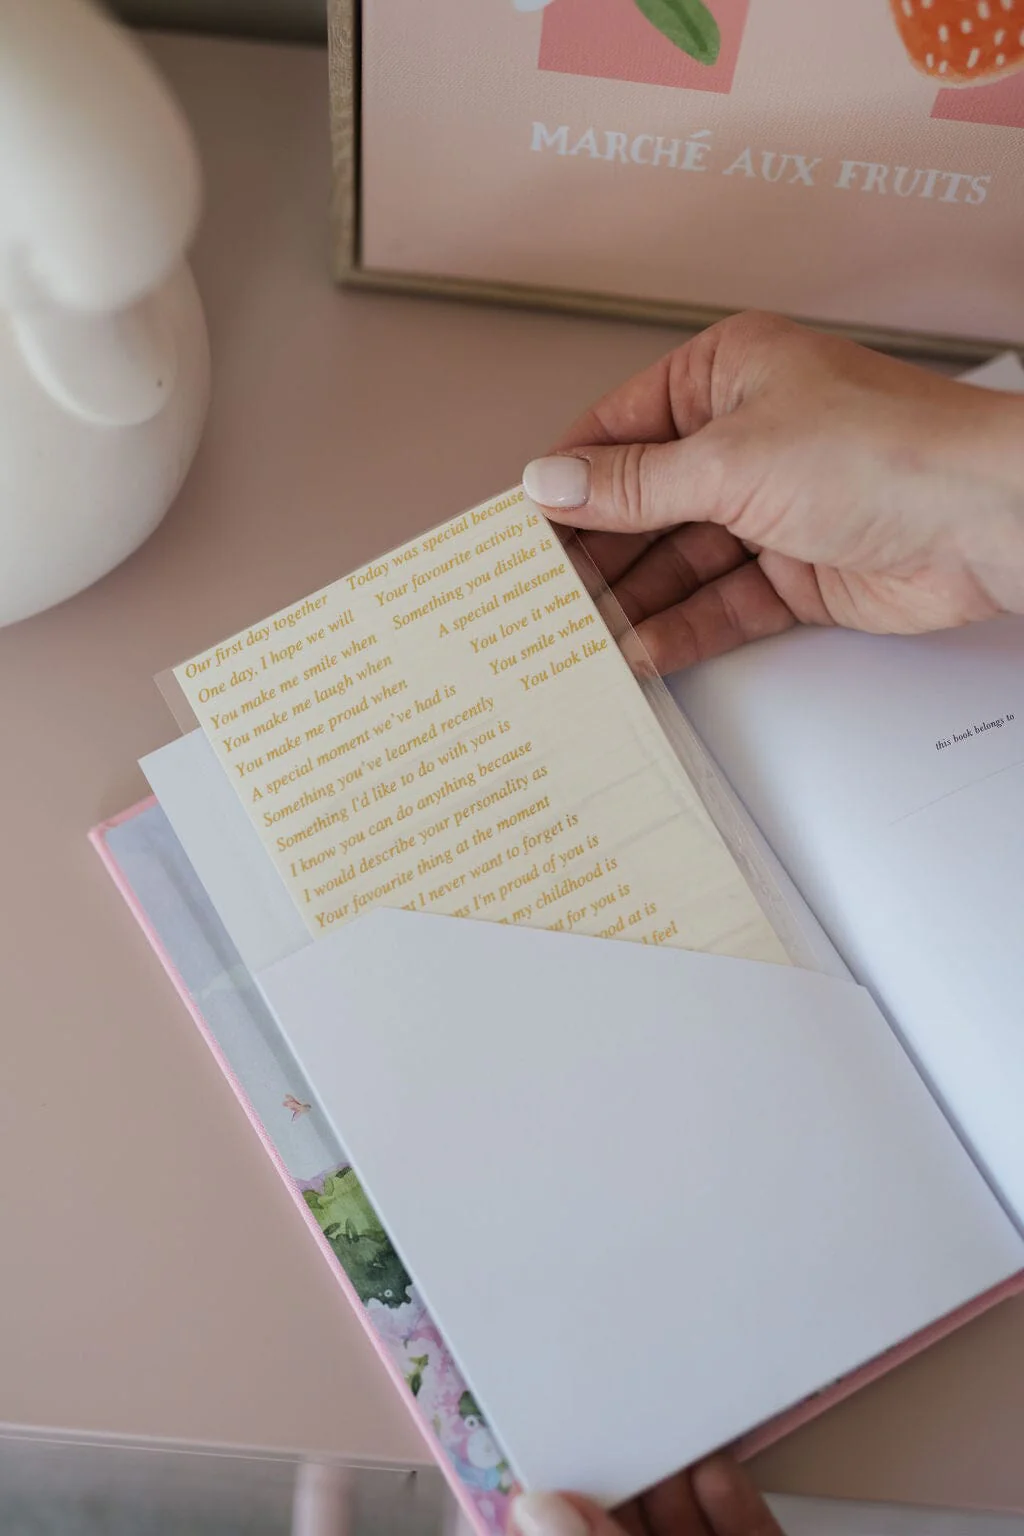 MARCHÉ AUX FRUITS
Our first day together
One day, I hope we will
You make me smile when
You make me laugh when
You make me proud when
A special moment we've had is
Something you've learned recently
Something I'd like to do with you is
I know you can do anything because
I would describe your personality as
Your favourite thing at the moment
I never want to forget is
I'm proud of you is
my childhood is
for you is
at is
I feel
Today was special because
Your favourite activity is
Something you dislike is
A special milestone
You love it when
You smile when
You look like
this book belongs to